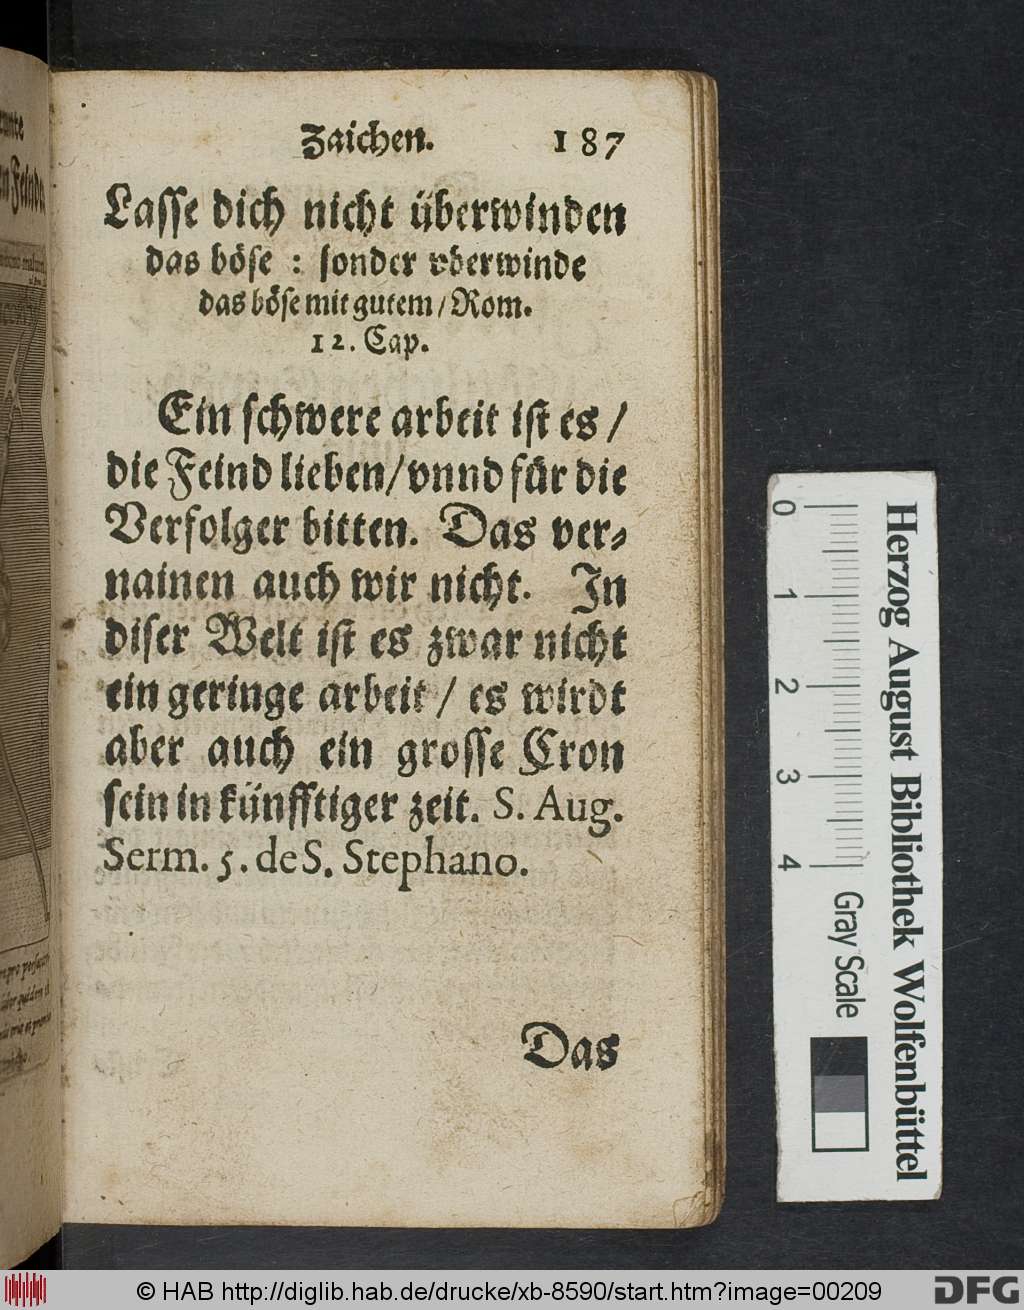 Zaichen. 187
Lasse dich nicht überwinden
das böse : sonder vberwinde
das böse mit gutem / Rom.
12. Cap.
Ein schwere arbeit ist es /
die Feind lieben / vnnd für die
Verfolger bitten. Das ver-
nainen auch wir nicht. In
diser Welt ist es zwar nicht
ein geringe arbeit / es wirdt
aber auch ein grosse Cron
sein in künfftiger zeit. S. Aug.
Serm. 5. de S. Stephano.
Das
0 1 2 3 4
Gray Scale
Herzog August Bibliothek Wolfenbüttel
© HAB http://diglib.hab.de/drucke/xb-8590/start.htm?image=00209
DFG